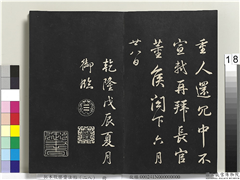 重人還冗中不
宣軾再拜長官
董侯閣下六月
廿八日
乾隆戊辰夏月
御臨
18